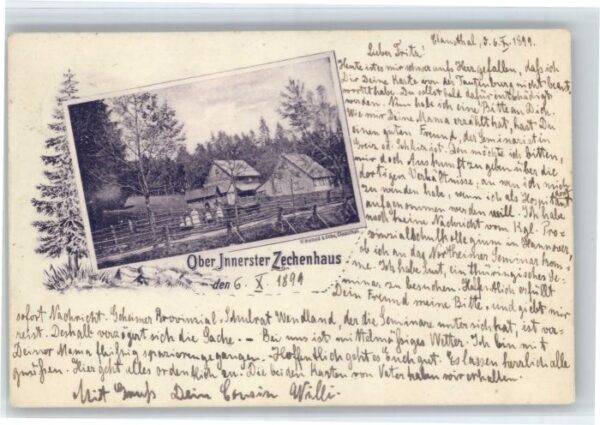 Clausthal, d. 6. X. 1899.
Lieber Fritz!
Heute ist es mir schwer aufs Herz gefallen, daß ich
Dir Deine Karte von der Tautenburg nicht beant
wortet habe. Du sollst bald dafür entschädigt
werden. Nun habe ich eine Bitte an Dich.
Wie mir Deine Mama erzählt hat, hast Du
einen guten Freund, der Seminarist in
Greiz ist. Den möchte ich bitten,
mir doch Auskunft zu geben über die
dortigen Verhältnisse, an wen ich mich
zu wenden habe, wenn ich als
aufgenommen werden will. Ich habe
noch keine Nachricht vom Kgl. Pro-
vinzialschulkollegium in Hannover,
ob ich an das Northeimer Seminar kom-
me. Ich habe Lust, ein thüringisches Se-
minar zu besuchen. Hoffentlich erfüllt
Dein Freund meine Bitte, und giebt mir
Ober Innerster Zechenhaus
den 6. X 1899
sofort Nachricht. Geheimer Provinzial-Schulrat Wendland, der die Seminare unter sich hat, ist ver-
reist. Deshalb verzögert sich die Sache. — Bei uns ist mittelmäßiges Wetter. Ich bin mit
Deiner Mama fleißig spazieren gegangen. Hoffentlich geht es Euch gut. Es lassen herzlich alle
grüßen. Hier geht alles ordentlich an. Die beiden Karten von Vater haben wir erhalten.
Mit Gruß Dein Cousin Willi.